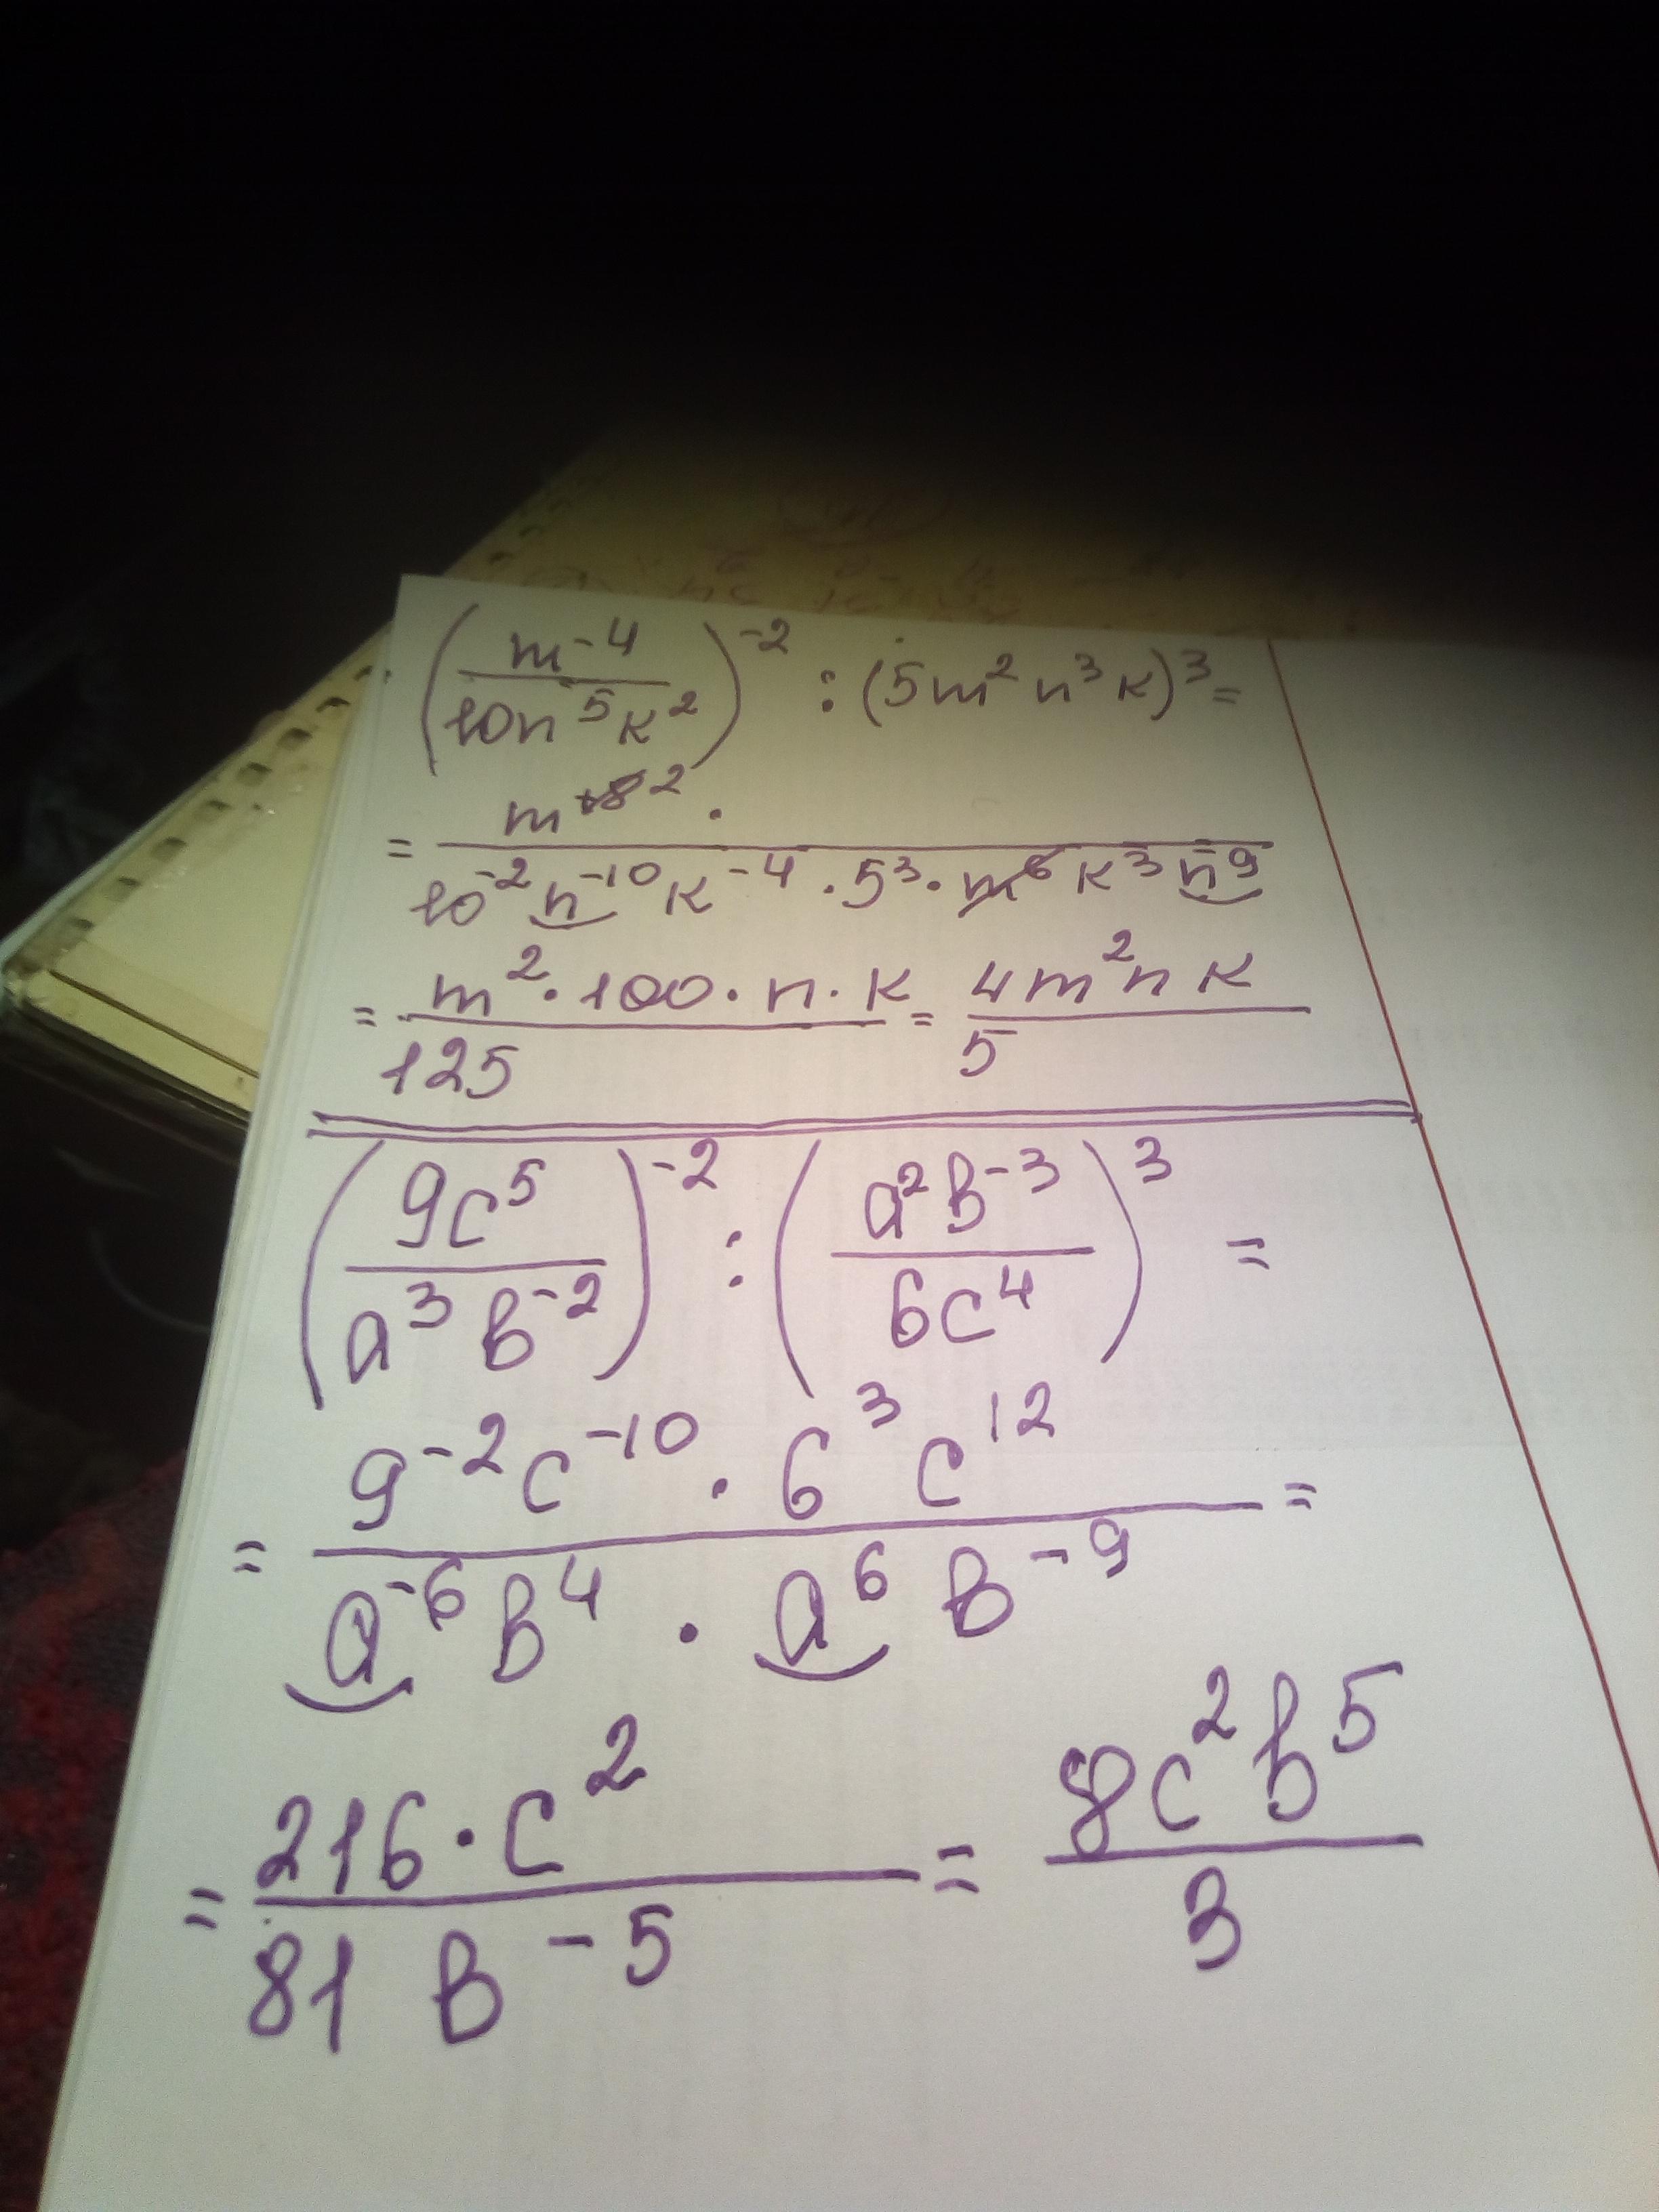 (m⁻⁴/10n⁵k²)⁻² : (5m²n³k)³ =
= m⁺⁸ ² · / 10⁻²n⁻¹⁰k⁻⁴ · 5³ · m⁶k³n⁹
= m² · 100 · n · k / 125 = 4m²nk / 5
(9c⁵/a³b⁻²)⁻² : (a²b⁻³/6c⁴)³ =
= 9⁻²c⁻¹⁰ · 6³c¹² / a⁻⁶b⁴ · a⁶b⁻⁹ =
= 216 · c² / 81 b⁻⁵ = 8c²b⁵ / 3